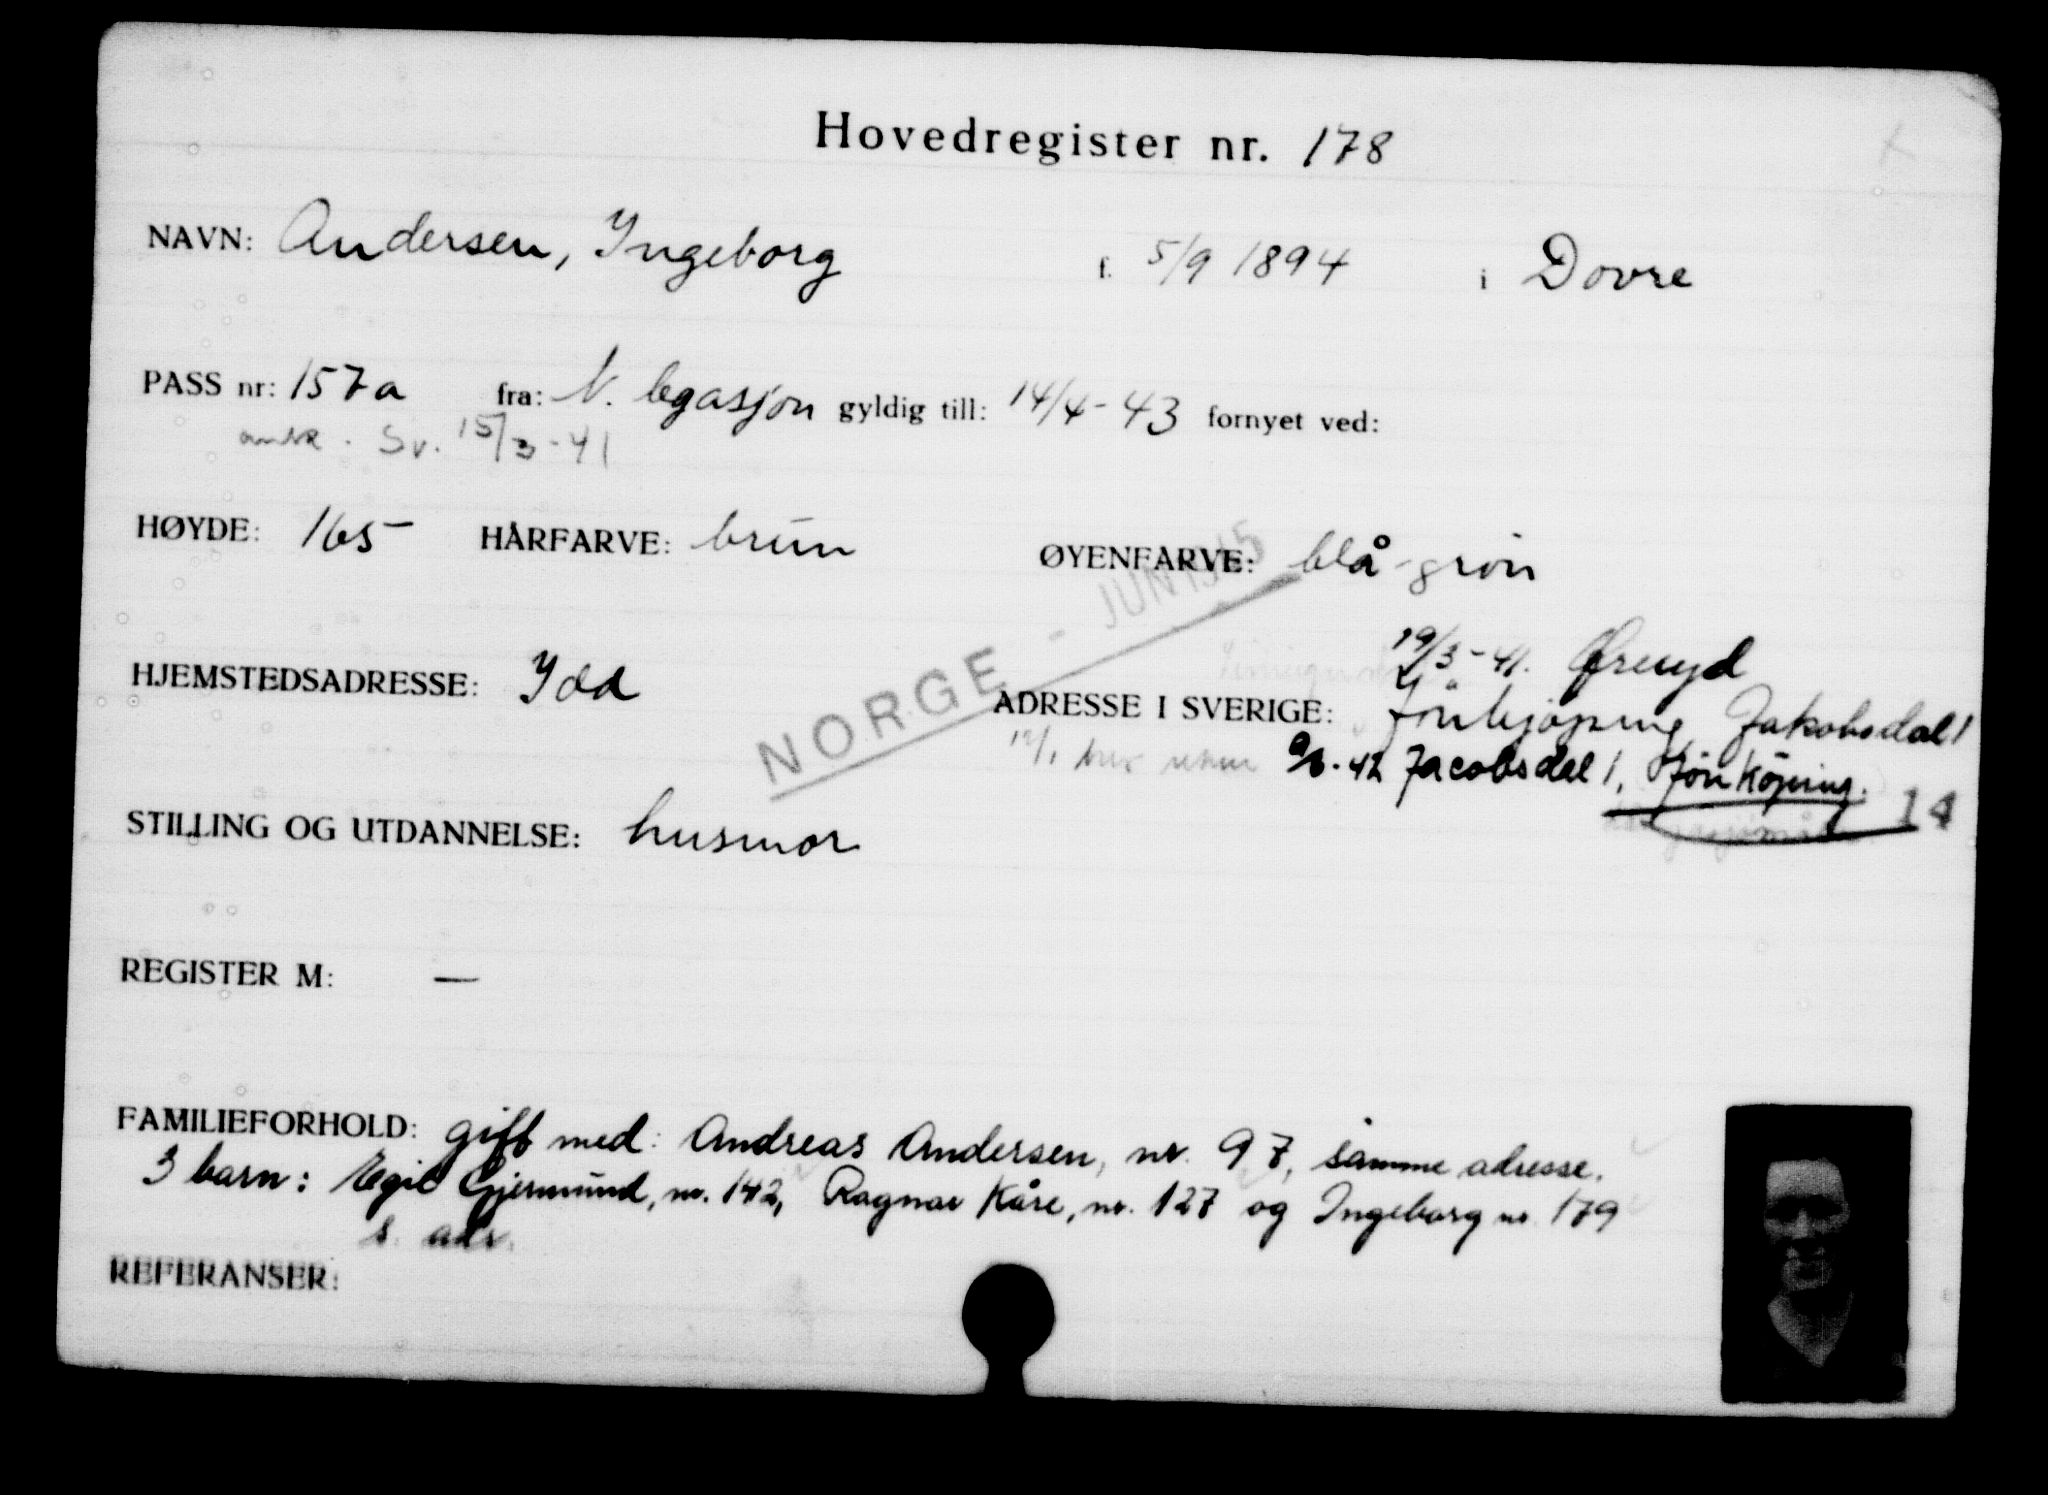 Hovedregister nr. 178
NAVN: Andersen, Ingeborg f. 5/9 1894 i Dovre
PASS nr: 157a fra: N. legasjon gyldig till: 14/4-43 fornyet ved:
ank. Sv. 15/3-41
HØYDE: 165 HÅRFARVE: brun ØYENFARVE: blå-grøn
NORGE - JUN 1945
19/3-41. Øreryd
HJEMSTEDSADRESSE: Idd ADRESSE I SVERIGE: Jönkjöping, Jakobsdal 1
42 Jacobsdal 1, Jönköping.
14
STILLING OG UTDANNELSE: husmor
REGISTER M: —
FAMILIEFORHOLD: gift med: Andreas Andersen, nr. 97, samme adresse.
3 barn: Egil Gjermund, nr. 142, Ragnar Kåre, nr. 127 og Ingeborg nr. 179
s. adr.
REFERANSER: